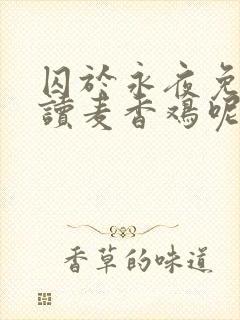 囚於永夜免
讀麦香鸡呢
香草的味道